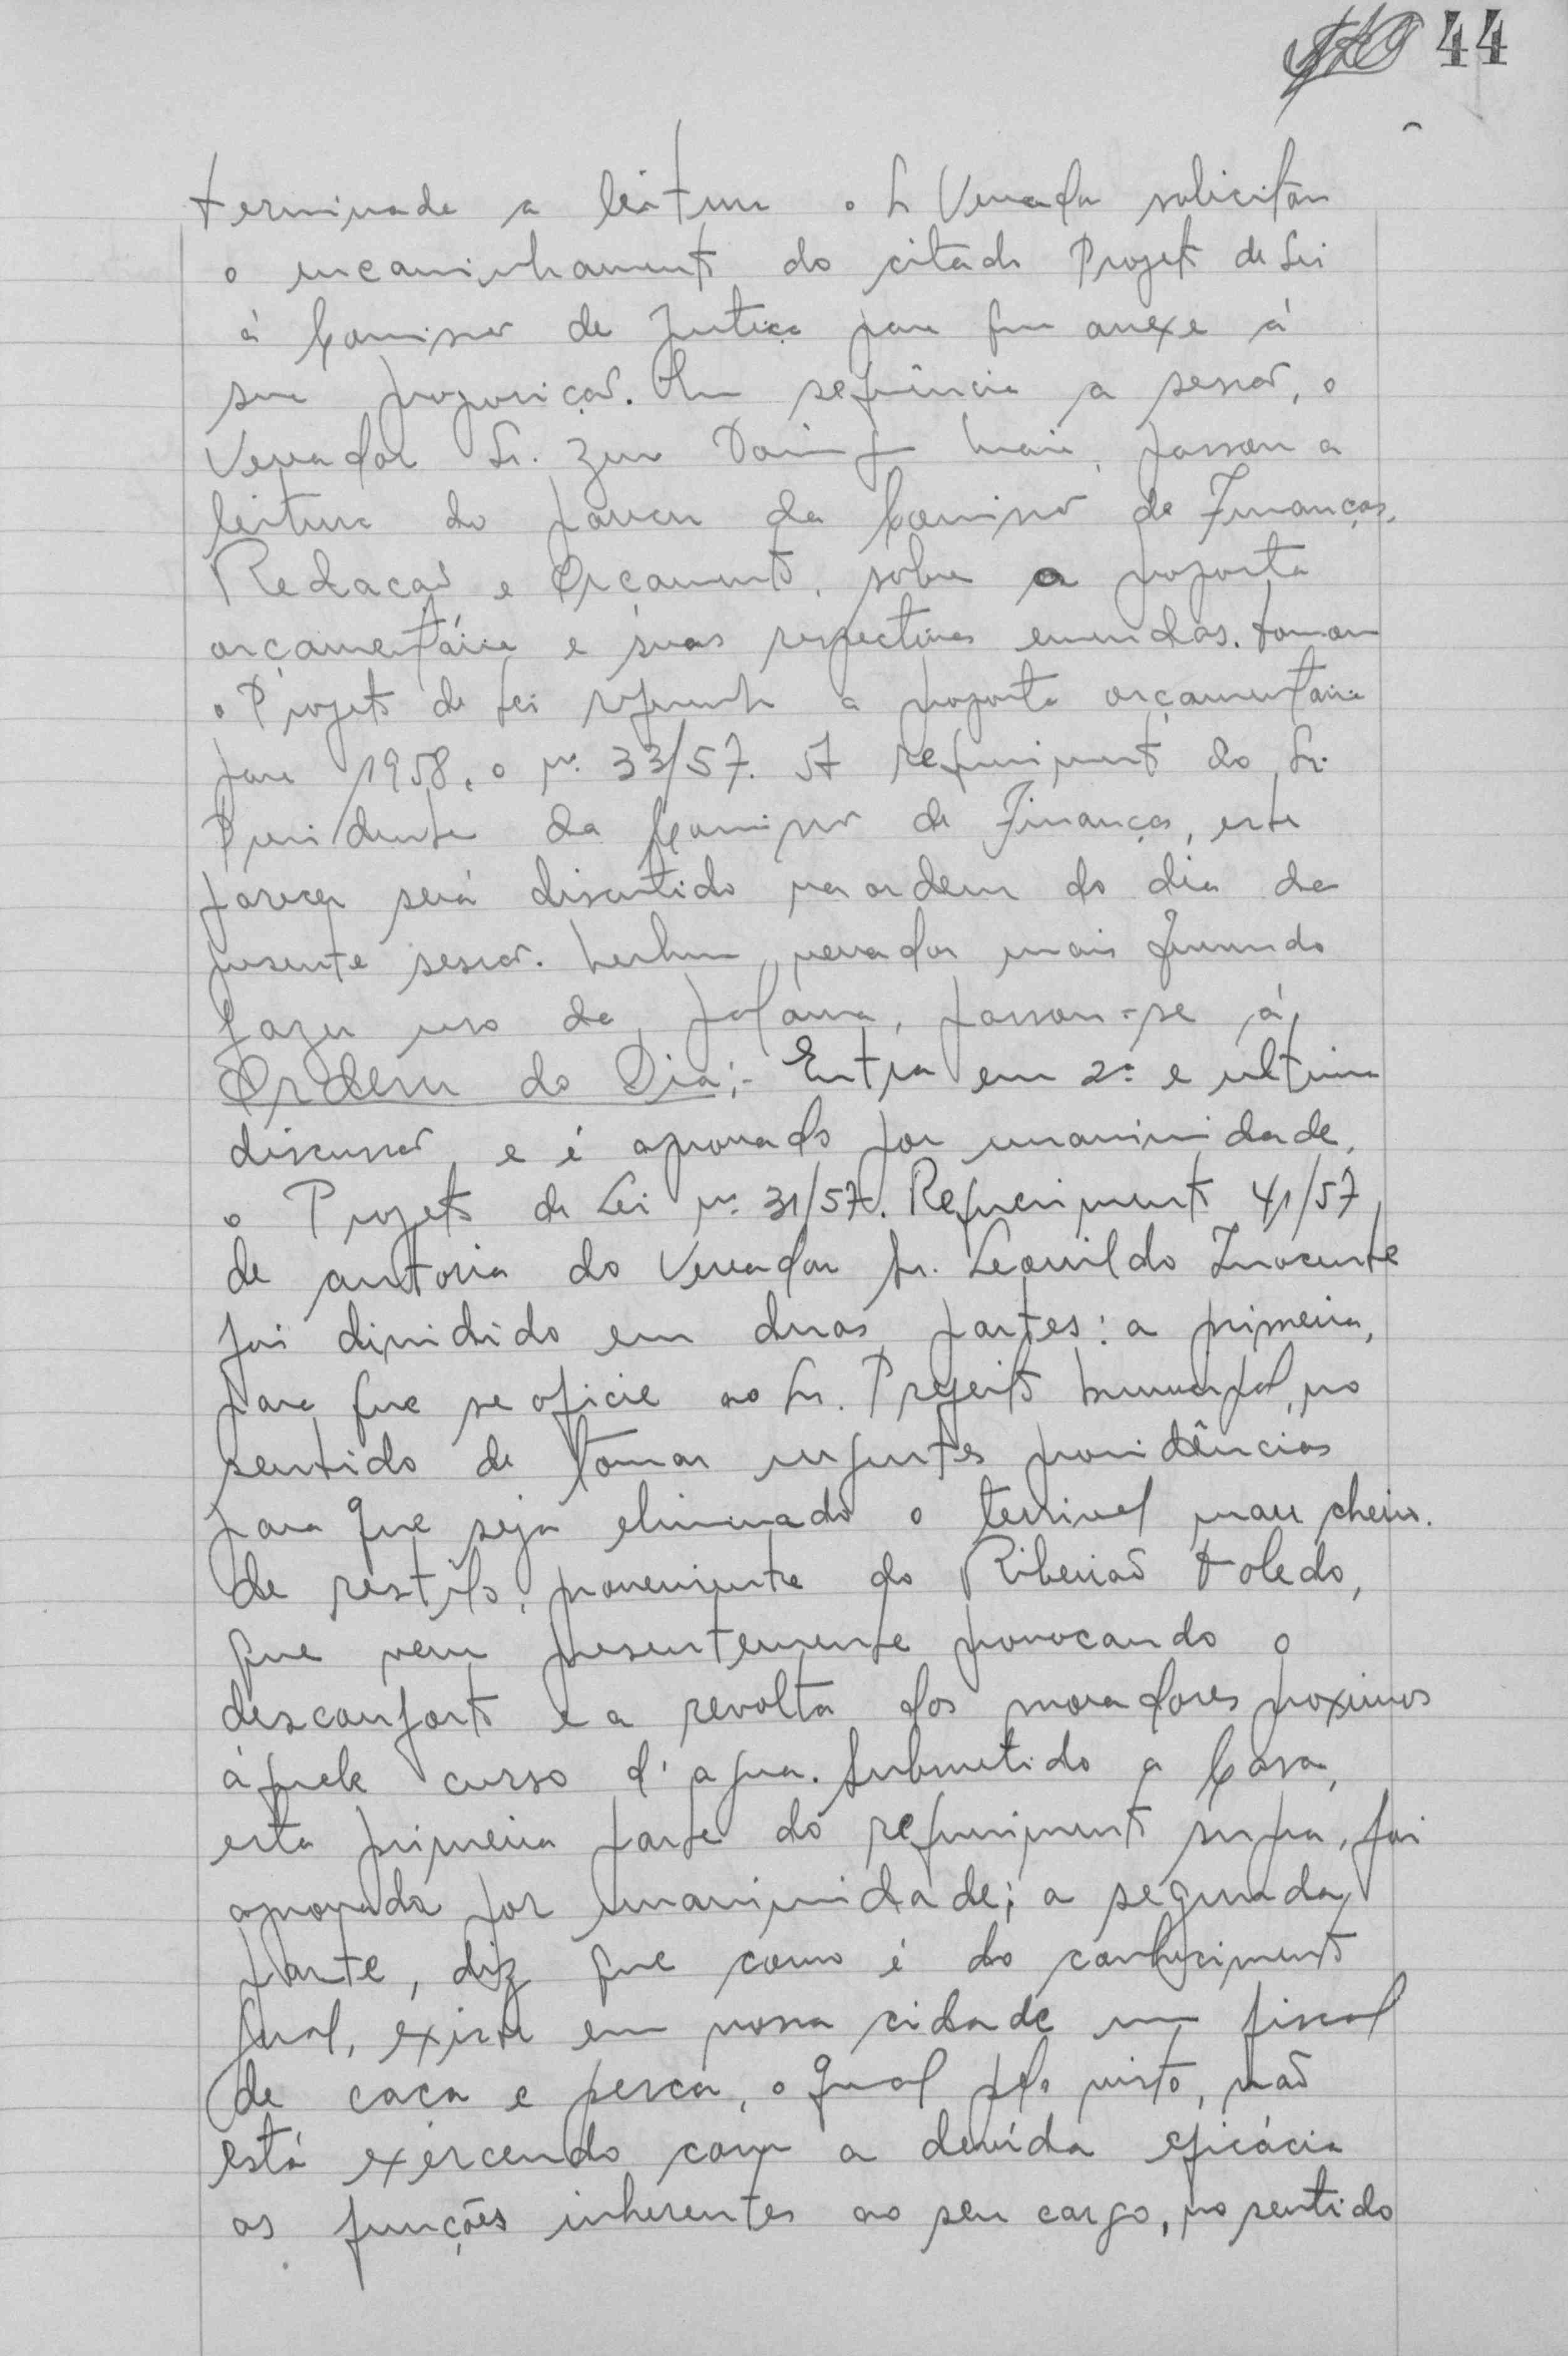 44
terminada a leitura o Sr Vereador solicitou
o encaminhamento do citado Projeto de Lei
á Comissão de Justiça para que anexe á
sua proposição. Em sequência a sessão, o
Vereador Sr. passou a
leitura do parecer da Comissão de Finanças,
Redacaõ e Orçamento, sobre a proposta
orçamentária e suas respectivas emendas. tomou
o Projeto de Lei referente a proposta orçamentária
para 1958, o nº 33/57. A requerimento do Sr.
Presidente da Comissão de Finanças, este
parecer será discutido na ordem do dia da
presente sessão. Nenhum vereador mais querendo
fazer uso da palavra, passou-se á
Ordem do Dia:- Entra em 2ª e ultima
discussão, e é aprovado por unanimidade,
o Projeto de Lei nº 31/57. Requerimento 41/57,
de autoria do Vereador Sr. Leonildo Inocente
foi dividido em duas partes: a primeira,
para que se oficie ao Sr. Prefeito Municipal, no
sentido de tomar urgentes providências
para que seja eliminado o terrivel mau cheiro
de restilo, proveniente do Ribeiraõ Toledo,
que vem presentemente provocando o
desconforto e a revolta dos moradores proximos
áquele curso d'agua. Submetido a Casa,
esta primeira parte do requerimento supra, foi
aprovada por unanimidade; a segunda
parte, diz que como é do conhecimento
geral, existe em nossa cidade um fiscal
de caca e pesca, o qual pelo visto, naõ
está exercendo com a devída eficácia
as funções inherentes ao seu cargo, no sentido